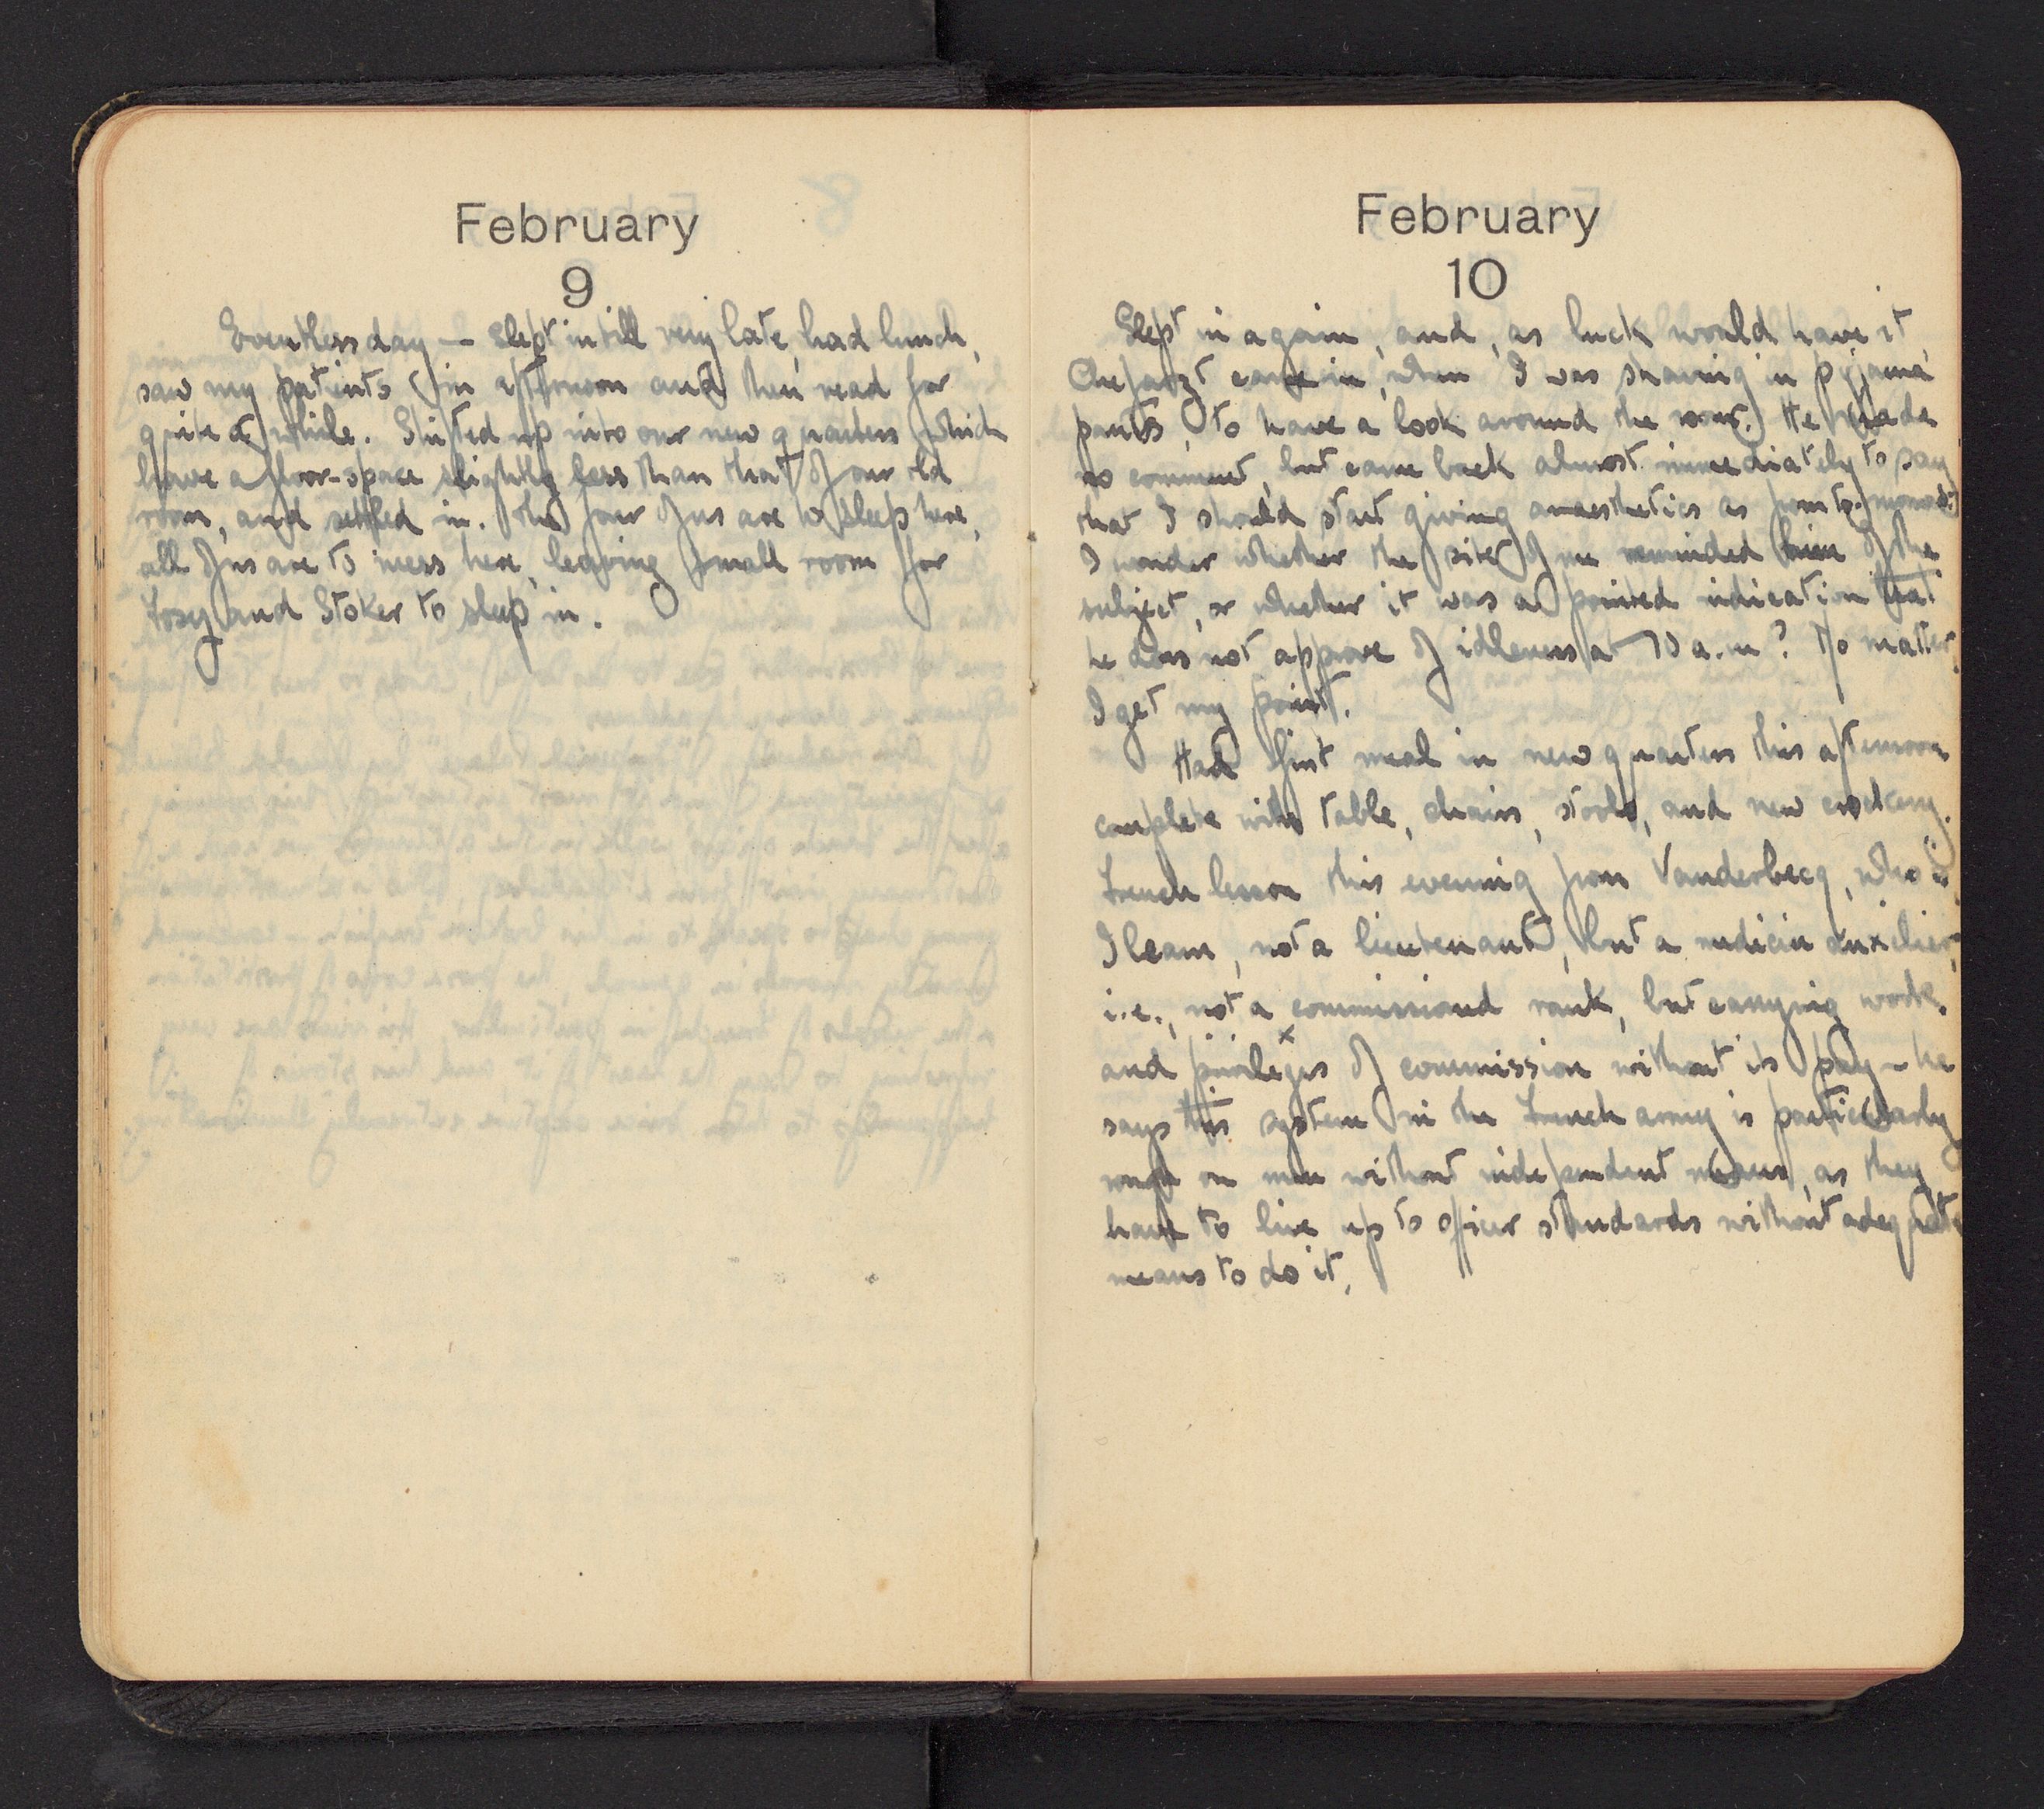 February
9
Eventless day — slept in till very late, had lunch,
saw my patients in afternoon and then read for
quite a while. Shifted up into our new quarters which
have a floor-space slightly less than that of our old
room, and settled in. The four of us are to sleep here,
all of us are to mess here, leaving small room for
and Stoker to sleep in.
February
10
Slept in again, and, as luck would have it,
Chefarzt came in, when I was shaving in pyjama
pants, to have a look around the room. He made
no comment, but came back almost immediately to say
that I should start giving anaesthetics as from to-morrow.
I wonder whether the site of me reminded him of the
subject, or whether it was a pointed indication that
he does not approve of idleness at 10 a.m? No matter,
I get my point.
Had first meal in new quarters this afternoon
complete with table, chairs, stools, and new crockery.
French lesson this evening from Vanderbecq, who is,
I learn, not a lieutenant, but a medicin auxilier,
i.e., not a commissioned rank, but carrying work
and privileges of commission without its pay – he
says this system in the French army is particularly
rough on men without independent means, as they
have to live up to officer standards without adequate
means to do it.